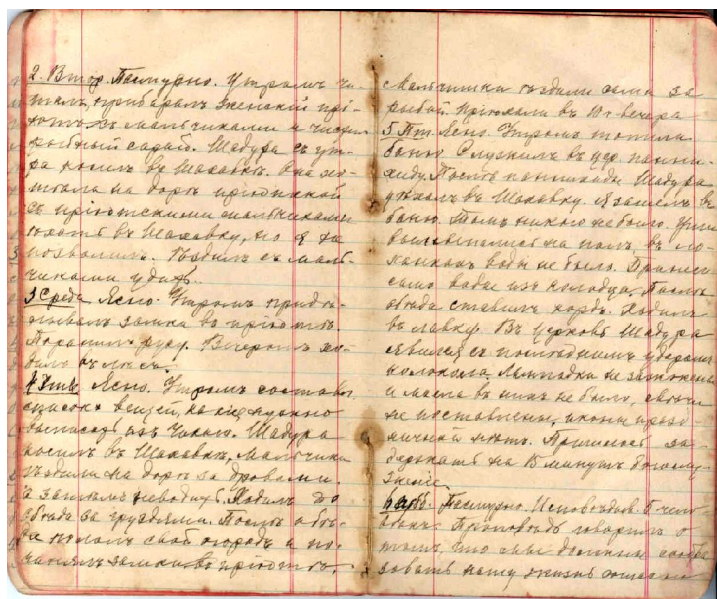 2. Втор. Пасмурно. Утромъ чи-
талъ, прибиралъ женскій прі-
ютъ съ мальчиками и чистил
рыбный сарай. Шадура съ ут-
ра косилъ въ Шаховкѣ. Она хо-
тѣла на дорѣ пріютской
съ пріютскими мальчиками
ѣхать въ Шаховку, но я не
позволилъ. Ѣздилъ съ маль-
чиками удить.
3 Среда Ясно. Утромъ придѣ-
лывалъ замки въ пріютѣ.
Поранилъ руку. Вечеромъ хо-
дилъ въ лѣсъ.
4 Чтв. Ясно. Утромъ составлял
списокъ вещей, кои нужно
выписать изъ Чикаго. Шадура
косилъ въ Шаховкѣ, мальчики
ѣздили на дорѣ за дровами.
а затѣмъ неводить. Ходилъ до
обѣда за груздями. Послѣ обѣ-
да пололъ свой огородъ и по-
чинялъ замки въ пріютѣ.
Мальчишки ѣздили сами за
рыбой. Пріѣхали въ 10 ч. вечера
5 Пт. Ясно. Утромъ топили
баню. Служилъ въ цер. панни-
хиду. Послѣ паннихиды Шадура
уѣхалъ въ Шаховку. Я зашелъ въ
баню. Тамъ никого не было. Угли
вываливались на полъ, въ ло-
ханкахъ воды не было. Принесъ
самъ воды изъ колодца. Послѣ
обѣда ставилъ кордъ. Ходилъ
въ лавку. Въ церковь Шадура
явился съ послѣднимъ ударомъ
колокола. Лампадки не зажжены
и масла въ нихъ не было, свѣчи
не поставлены, иконы празд-
ничной нѣтъ. Пришлось за-
держать на 15 минутъ богослу-
женіе.
6 Субб. Пасмурно. Исповѣдал. 5 чело-
вѣкъ. Проповѣдь говорилъ о
томъ, что мы должны
нашу жизнь согласно